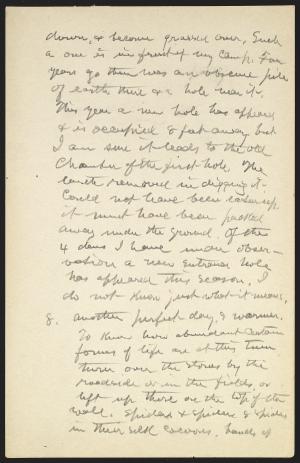 down, & become grassed over. Such
a one is in front of my Camp. Four
years ago there was an obscure pile
of earth there & a hole near it.
This year a new hole has appeared
& is occupied 8 feet away but
I am sure it leads to the old
Chamber of the first hole. The
earth removed in digging it
Could not have been carried up
it must have been packed
away under the ground. Of the
4 dens I have under obser-
vation a new entrance hole
has appeared this season. I
do not know just what it means.
8. Another perfect day, & warmer.
To know how abundant certain
forms of life are at this time
turn over the stones by the
roadside or in the fields, or
lift up those on the top of the
wall. Spiders & spiders & spiders
in their silk cocoons, bands of